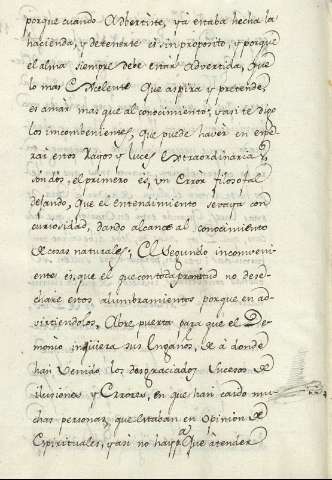 porque cuando Adhertiste, ya estaba hecha la
hacienda, y detenerte es sin proposito, y porque
el alma siempre debe estar Advertida, que
lo mas Excelente que aspira y pretende,
es amar mas que al conocimiento; y asi te digo
los inconbenientes, que puede haver en espe
rar estos Rayos y luces extraordinarias, y
son dos, el primero es, vn Error filosofal
dejando, que el entendimiento se vaya con
curiosidad, dando alcance al conocimiento
de cosas naturales; El segundo inconveni-
ente es, que el que con toda prontitud no dese-
chare estos alumbramientos, porque en ad-
virtiendolos, Abre puerta para que el De-
monio injiera sus Engaños, de a donde
han venido los desgraciados sucesos de
ilusiones y Errores, en que han caido mu-
chas personas, que estaban en opinion de
Espirituales, y asi no hay pa que atender